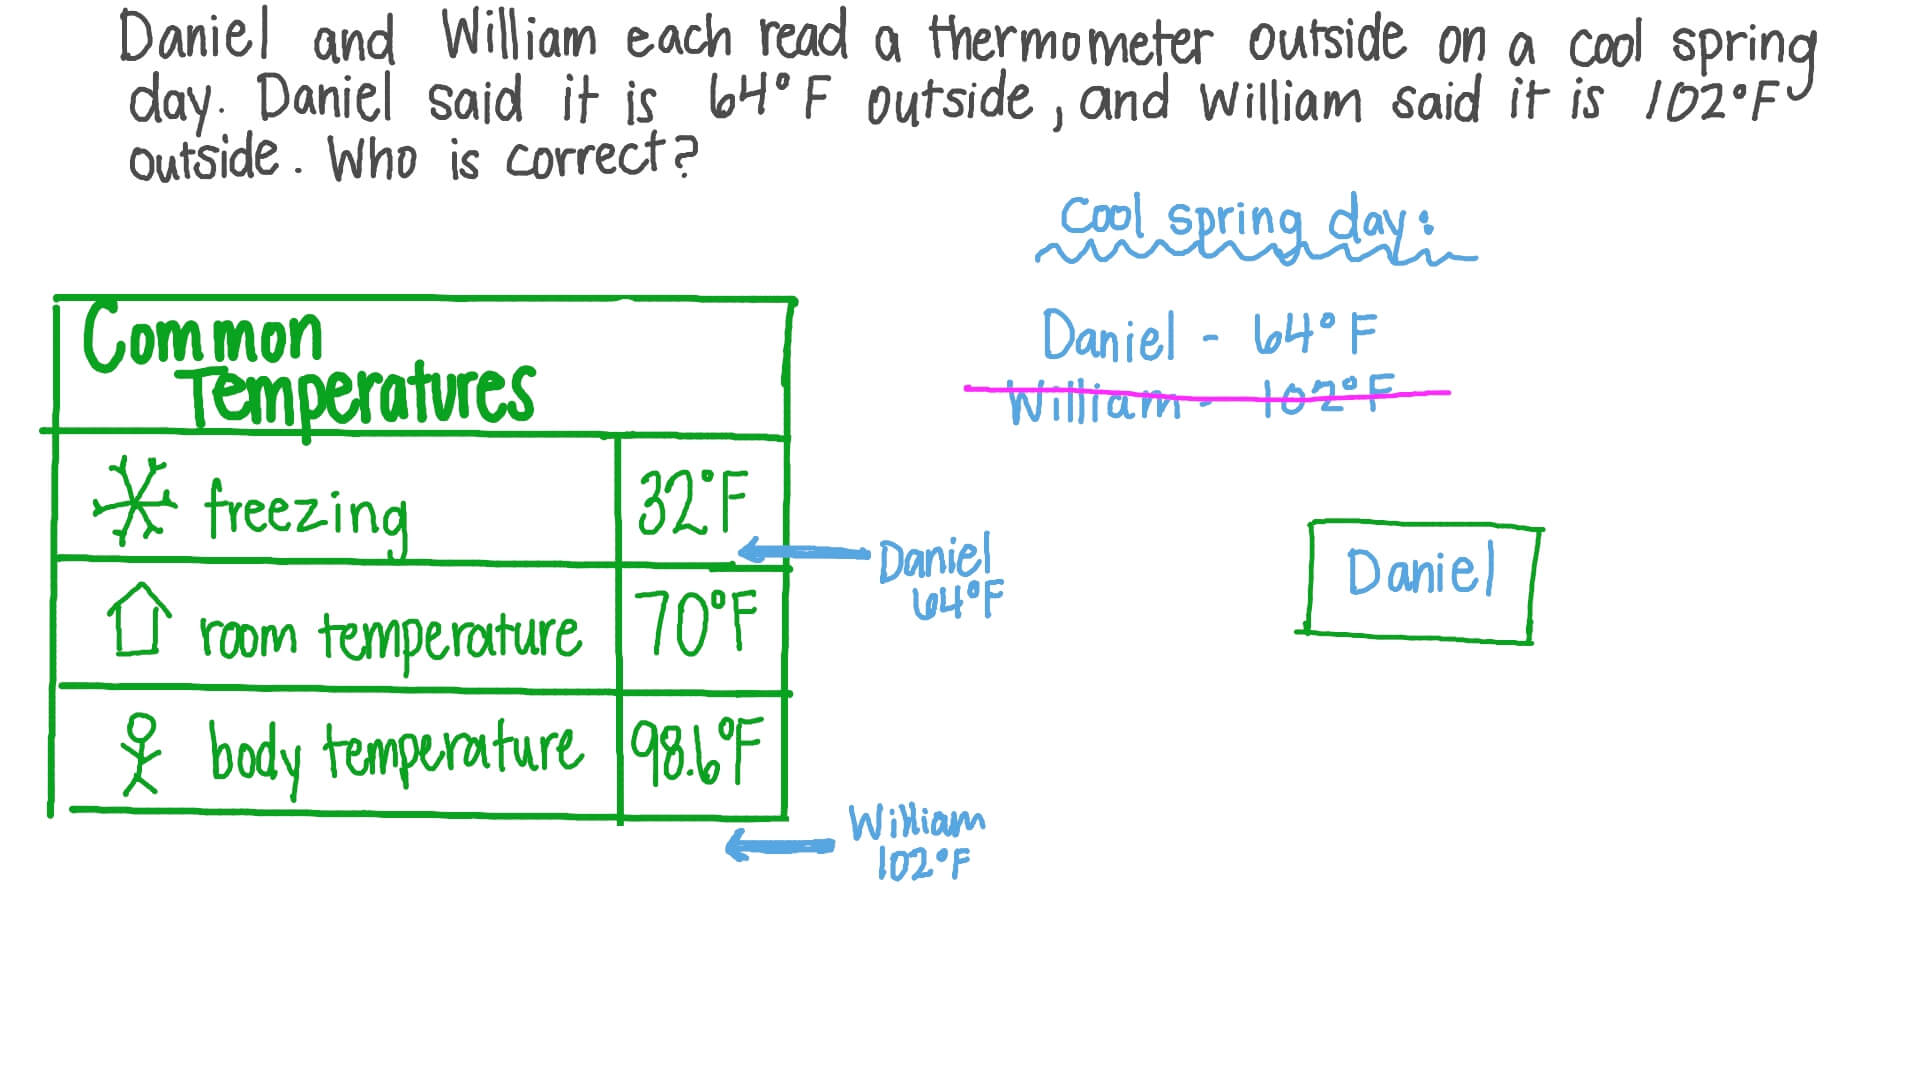 Daniel and William each read a thermometer outside on a cool spring
day. Daniel said it is 64°F outside, and William said it is 102°F
outside. Who is correct?
Cool spring day:
Daniel - 64°F
William - 102°F
Common
Temperatures
freezing 32°F
room temperature 70°F
body temperature 98.6°F
Daniel
64°F
William
102°F
Daniel